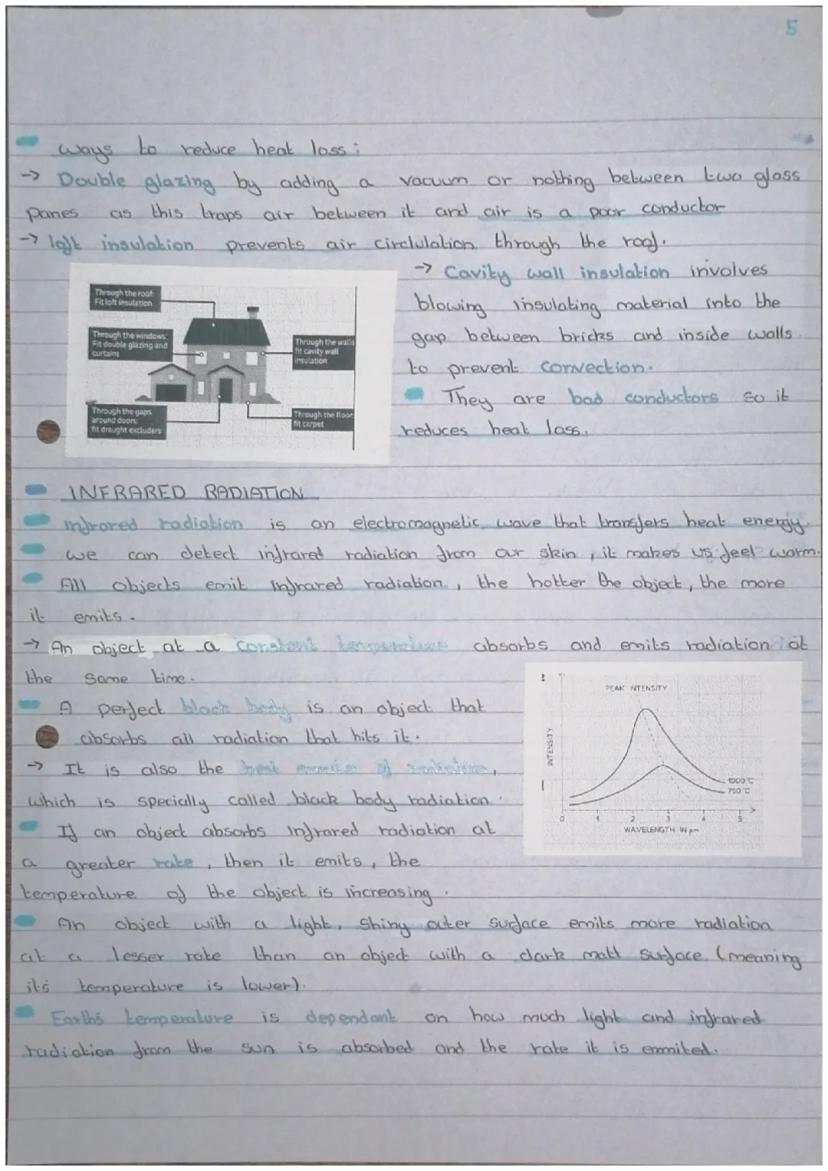 5
Ways to reduce heat loss:
→ Double glazing by adding a vacuum or nothing between two glass
panes as this traps air between it and air is a poor conductor
→ loft insulation prevents air circlulation through the roof.
→ Cavity wall insulation involves
blowing insulating material into the
gap between bricks and inside walls
to prevent convection.
They are bad conductors so it
reduces heat loss.
Through the roof:
Fit loft insulation
Through the windows:
Fit double glazing and
curtains
Through the walls
fit cavity wall
insulation
Through the gaps
around doors:
fit draught excluders
Through the floor
fit carpet
INFRARED RADIATION
Infrared radiation is an electromagnetic wave that transfers heat energy.
we can detect infrared radiation from our skin, it makes us feel warm.
All objects emit infrared radiation, the hotter the object, the more
it emits.
→ An object at a constant temperature absorbs and emits radiation at
the same time.
A perfect black body is an object that
absorbs all radiation that hits it.
→ It is also the best emitter of radiation,
which is specially called black body radiation.
If an object absorbs infrared radiation at
a greater rate, then it emits, the
temperature of the object is increasing.
PEAK INTENSITY
INTENSITY
1000°C
750°C
0 1 2 3 4 5
WAVELENGTH IN μm
An object with a light, shiny outer surface emits more radiation
at a lesser rate than an object with a dark matt surface (meaning
its temperature is lower).
Earths temperature is dependant on how much light and infrared
radiation from the sun is absorbed and the rate it is emmited.